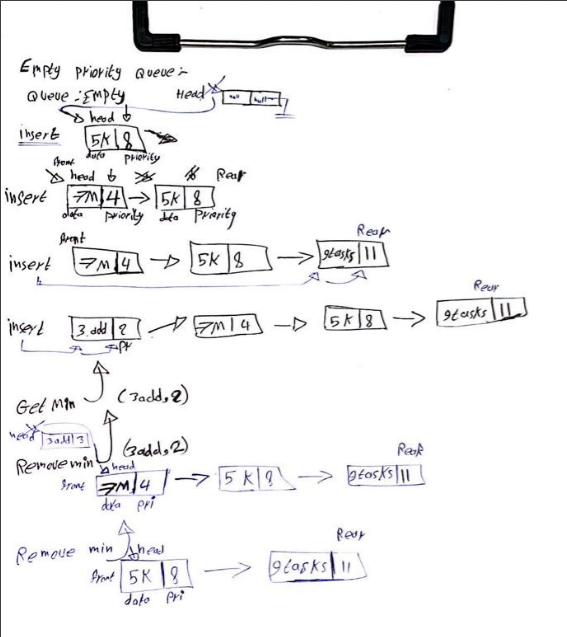 Empty Priority Queue:-
Queue:-Empty Head null null
head
insert 5K 8
data priority
front head Rear
insert 7M 4 5K 8
data priority data Priority
front Rear
insert 7M 4 5K 8 9tasks 11
Rear
insert 3.add 2 7M 4 5K 8 9tasks 11
pr
Get Min (3add,2)
head 3add 3
(3add,2)
Remove min head Rear
front 7M 4 5K 8 9tasks 11
data pri
Rear
Remove min head
front 5K 8 9tasks 11
data pri